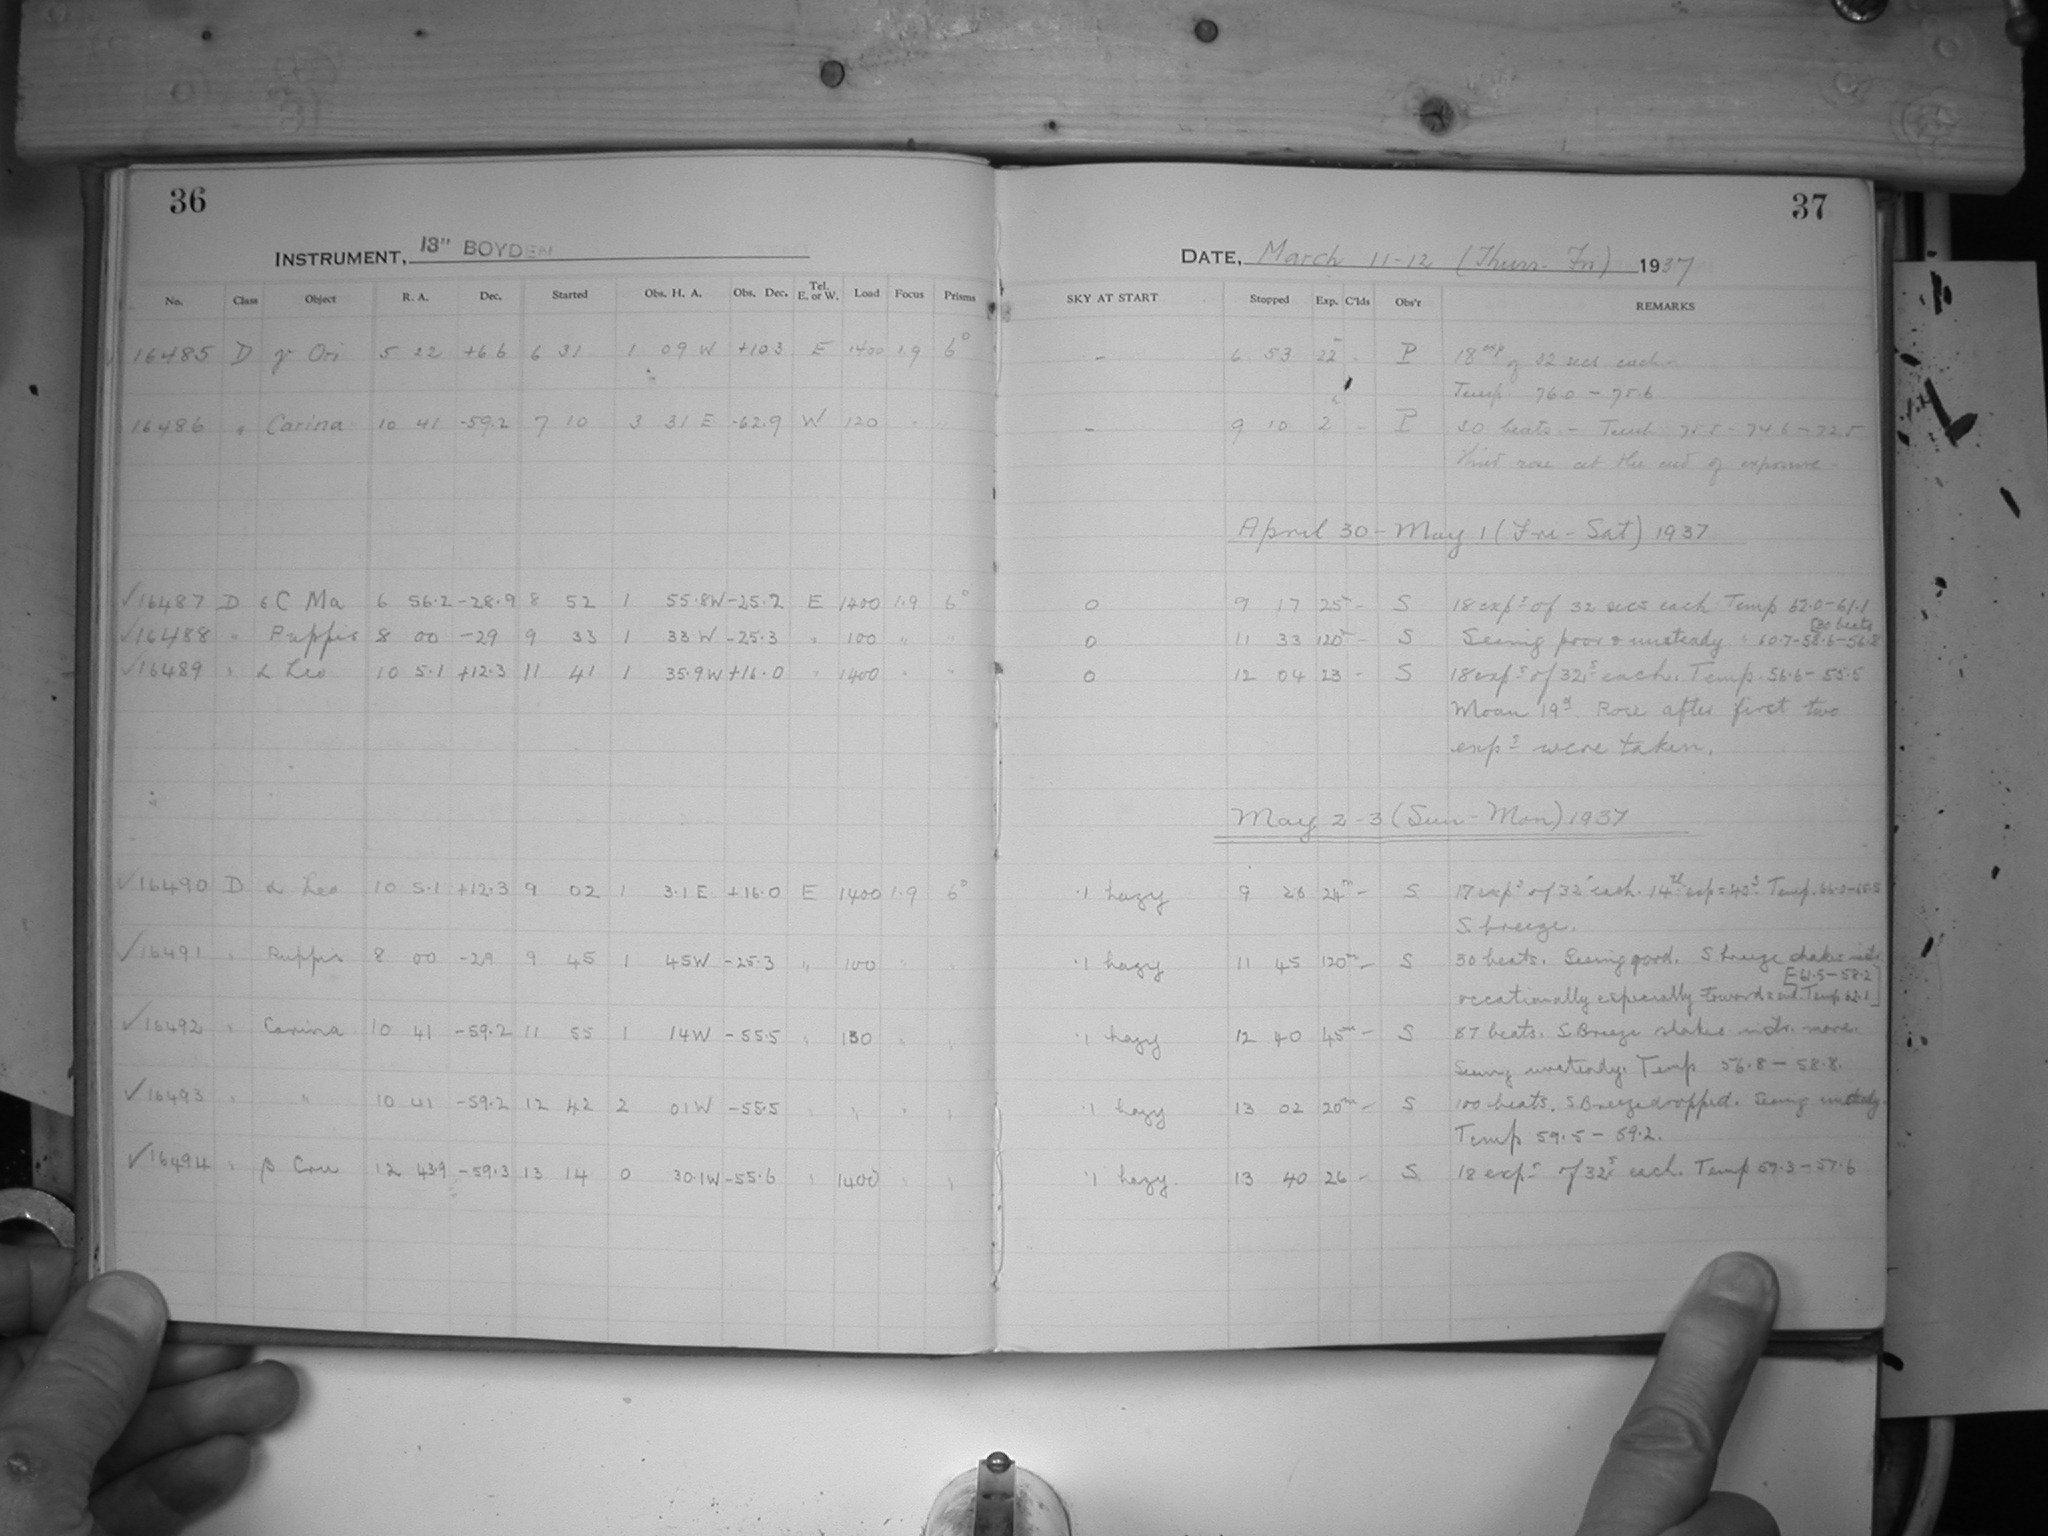 36
INSTRUMENT, 13" BOYDEN
No. Class Object R. A. Dec. Started Obs. H. A. Obs. Dec. Tel. E. or W. Load Focus Prisms
16485 D γ Ori 5 22 +6.6 6 31 1 09 W +10.3 E 1400 1.9 6°
16486 " Carina 10 41 -59.2 7 10 3 31 E -62.9 W 120 " "
✓16487 D ε C Ma 6 56.2 -28.9 8 52 1 55.8W -25.2 E 1400 1.9 6°
✓16488 " Puppis 8 00 -29 9 33 1 33 W -25.3 " 100 " "
✓16489 " α Leo 10 5.1 +12.3 11 41 1 35.9W +16.0 " 1400 " "
✓16490 D α Leo 10 5.1 +12.3 9 02 1 3.1 E +16.0 E 1400 1.9 6°
✓16491 " Puppis 8 00 -29 9 45 1 45W -25.3 " 100 " "
✓16492 " Carina 10 41 -59.2 11 55 1 14W -55.5 " 130 " "
✓16493 " " 10 41 -59.2 12 42 2 01W -55.5 " " " "
✓16494 " β Cru 12 43.9 -59.3 13 14 0 30.1W -55.6 " 1400 " "
37
DATE, March 11-12 (Thurs-Fri) 1937
SKY AT START Stopped Exp. C'lds Obs'r REMARKS
- 6 53 22 - P 18 exp of 32 secs each
Temp 76.0 - 75.6
- 9 10 2 - P 30 beats - 74.6 - 72.5
rose at the end of exposure -
April 30 - May 1 (Fri - Sat) 1937
0 9 17 25m - S 18 exps of 32 secs each Temp 62.0-61.1
0 11 33 120m - S Seeing poor & unsteady " 60.7-58.6-56.8 [30 beats
0 12 04 23 - S 18 exps of 32s each. Temp. 56.6 - 55.5
Moon 19d Rose after first two
exps were taken.
May 2-3 (Sun - Mon) 1937
.1 hazy 9 26 24m - S 17 exps of 32s each. 14th exp = 40s. Temp. 66.0-65.5
S. breeze.
.1 hazy 11 45 120m - S 30 beats. Seeing good. S breeze shakes instr.
occationally especially towards end. Temp. 62.1 [-61.5-58.2]
.1 hazy 12 40 45m - S 87 beats. S. Breeze shakes instr. more.
Seeing unsteady. Temp 56.8 - 58.8.
.1 hazy 13 02 20m - S 100 beats. S Breeze dropped. Seeing unsteady.
Temp 59.5 - 59.2.
.1 hazy. 13 40 26 - S 18 exps of 32s each. Temp 59.3 - 57.6